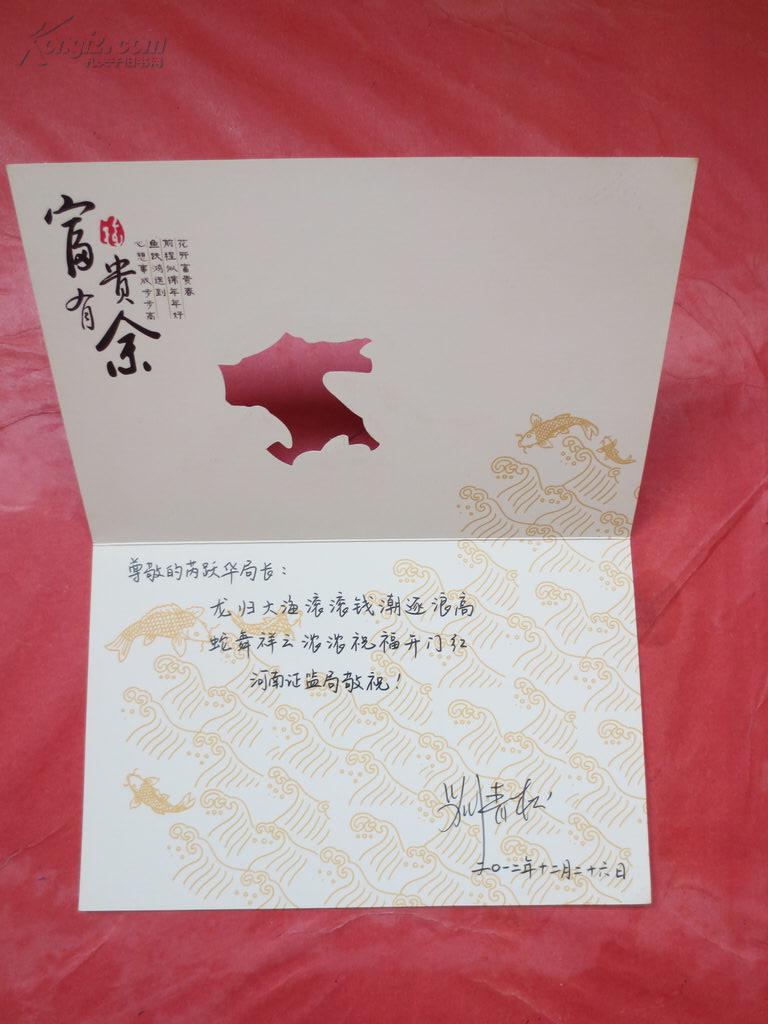 Kongfz.com
孔夫子旧书网
富贵有余
花开富贵春
前程似锦年年好
鱼跃鸿运到
心想事成步步高
尊敬的芮跃华局长：
龙归大海滚滚钱潮逐浪高
蛇舞祥云浓浓祝福开门红
河南证监局敬祝！
青松
二〇一二年十二月二十六日